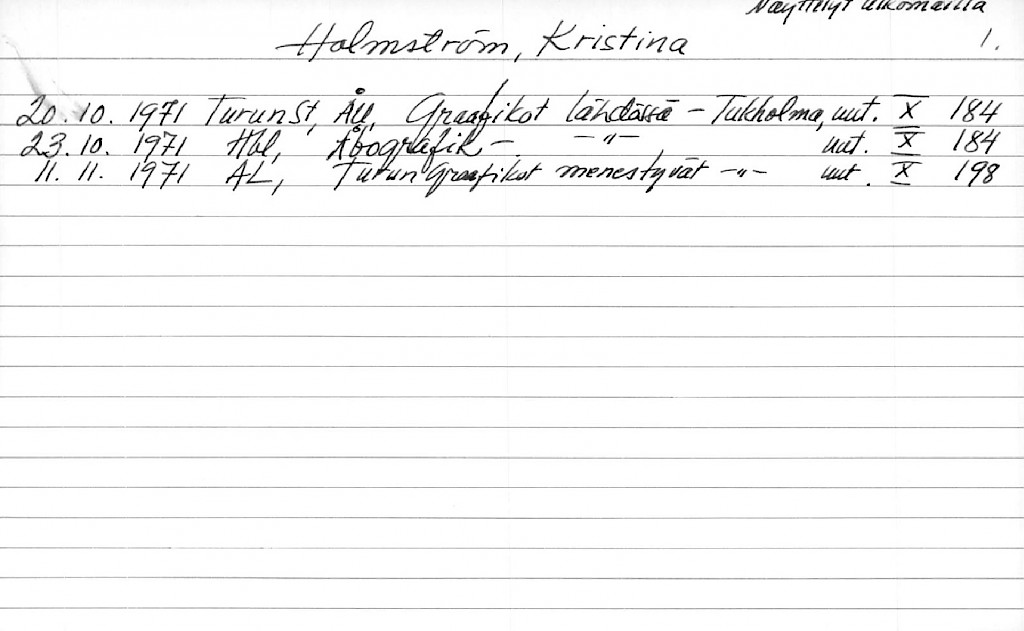 Näyttelyt ulkomailla
1.
Holmström, Kristina
20.10.1971 TurunSt, ÅU, Graafikot lähdössä - Tukholma, uut. X 184
23.10.1971 Hbl, Åbografik - -"- uut. X 184
11.11.1971 AL, Turun Graafikot menestyvät -"- uut. X 198